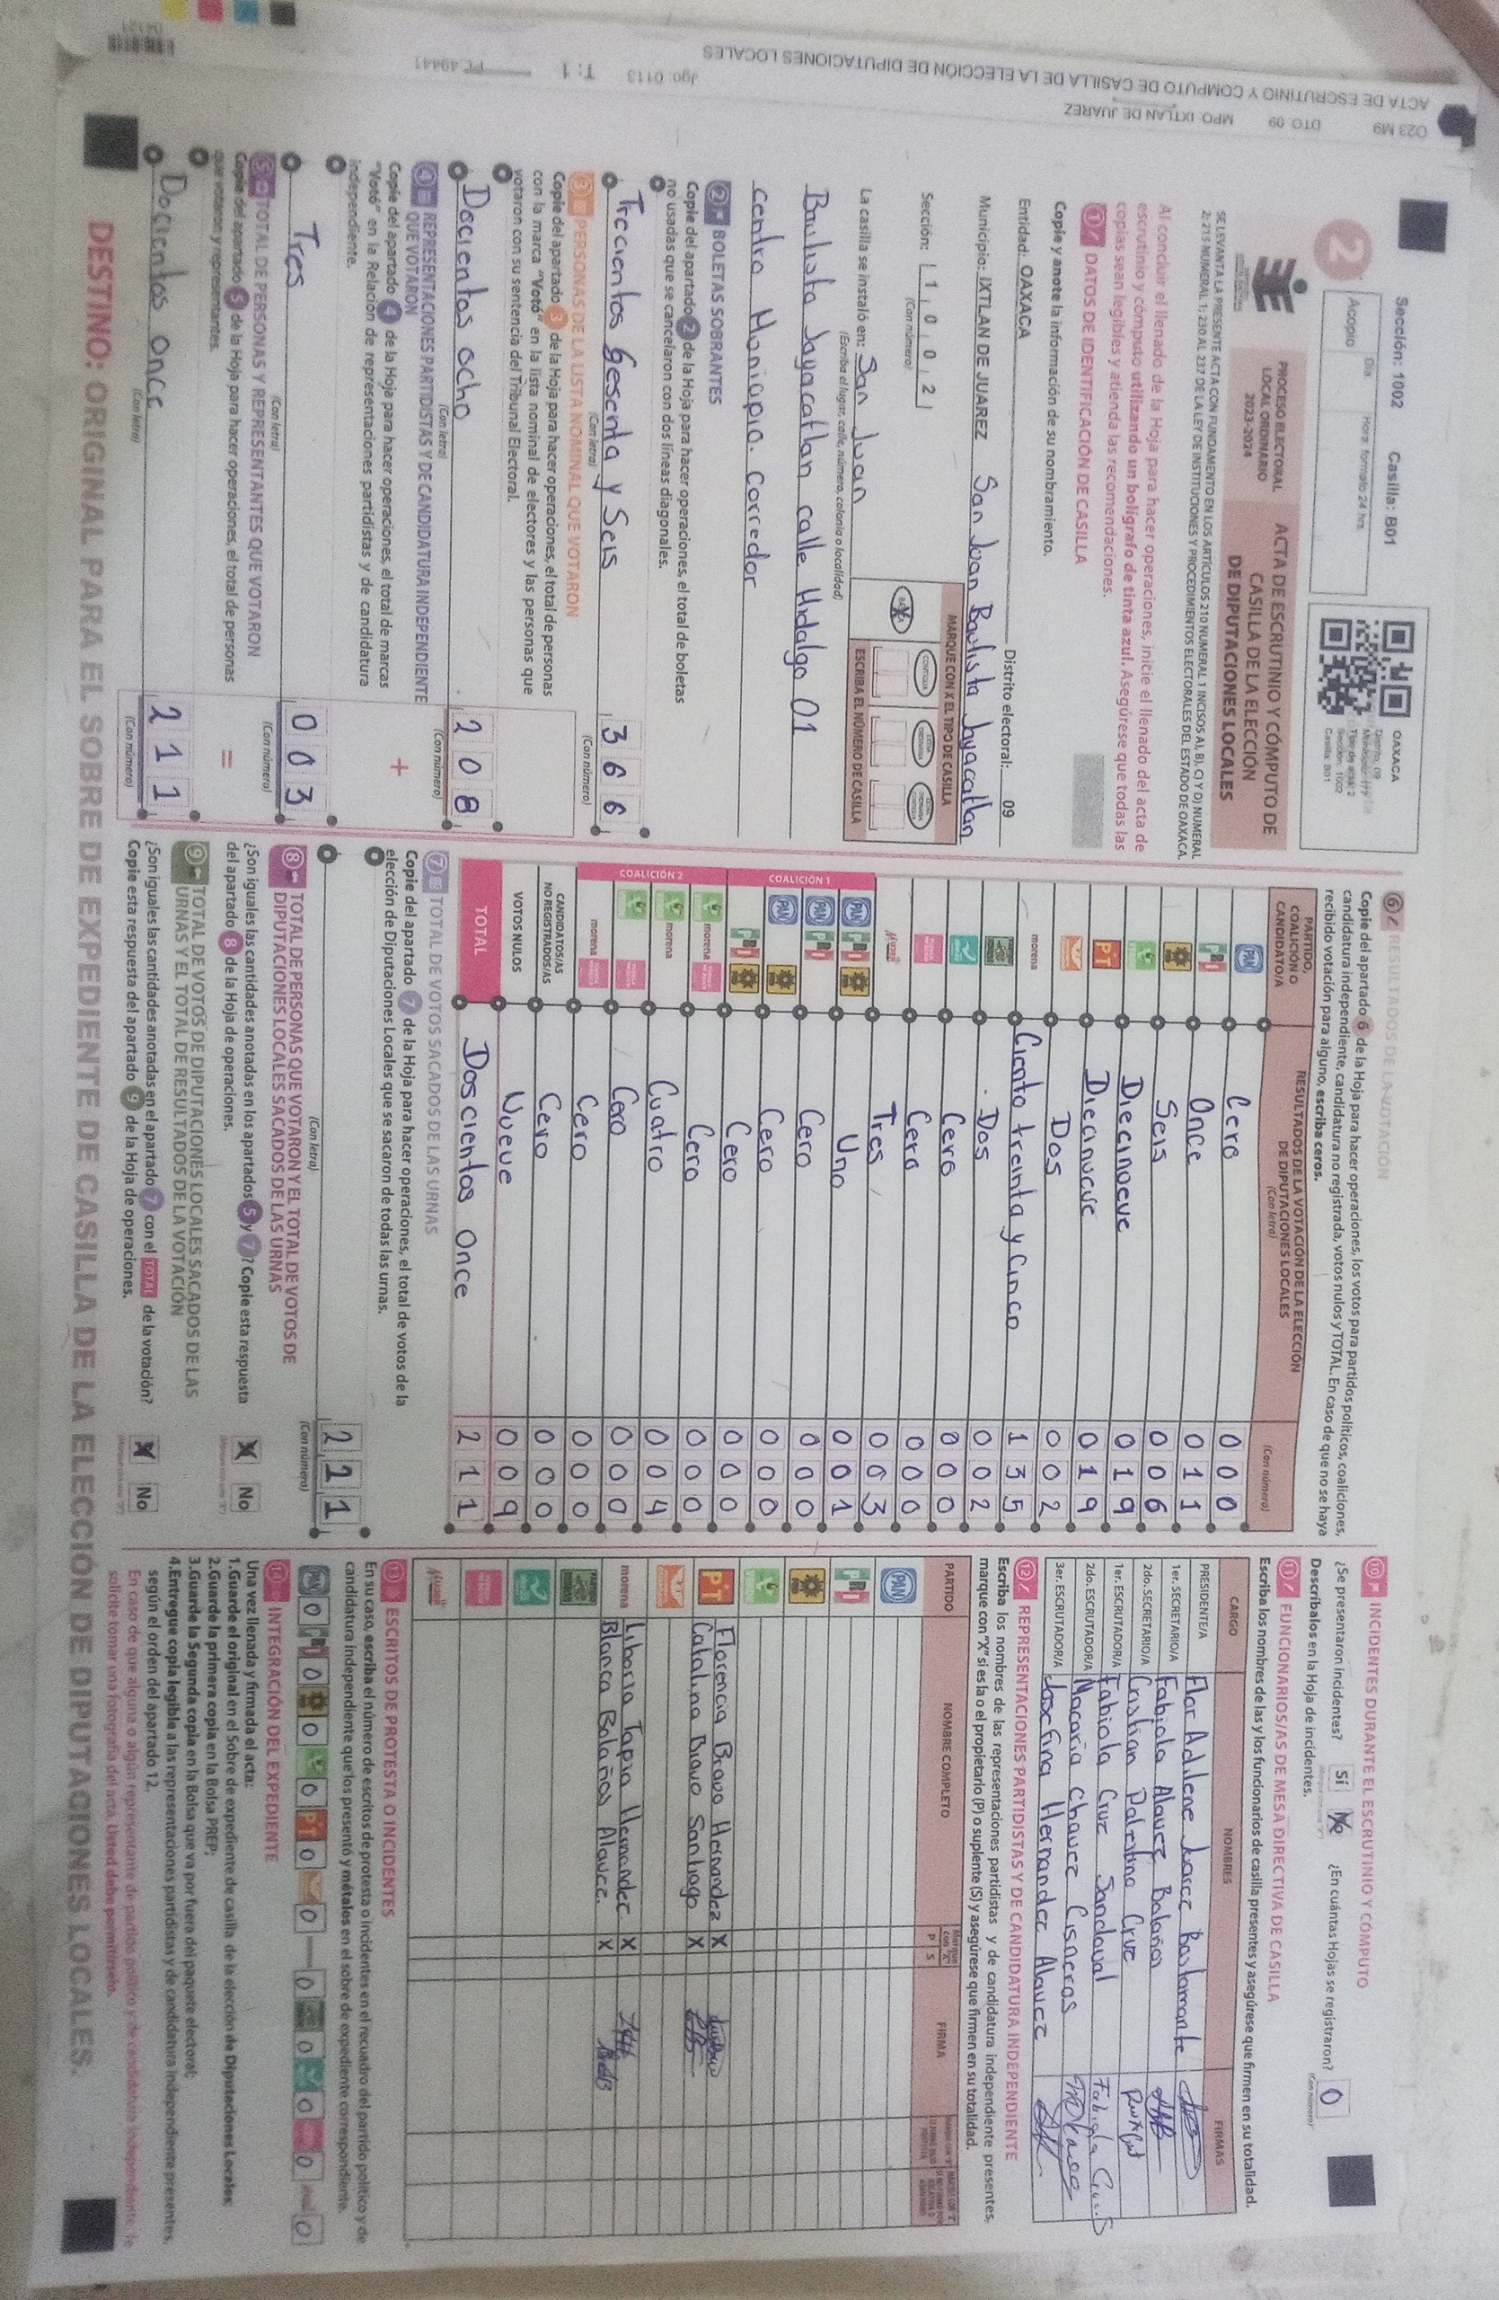 Sección: 1002 Casilla: B01
2
Día Hora: formato 24 hrs.
Acopio
OAXACA
PROCESO ELECTORAL
LOCAL ORDINARIO
2023-2024
ACTA DE ESCRUTINIO Y CÓMPUTO DE
CASILLA DE LA ELECCIÓN
DE DIPUTACIONES LOCALES
SE LEVANTA LA PRESENTE ACTA CON FUNDAMENTO EN LOS ARTÍCULOS 210 NUMERAL 1 INCISOS A), B), C) Y D) NUMERAL
2; 215 NUMERAL 1; 230 AL 237 DE LA LEY DE INSTITUCIONES Y PROCEDIMIENTOS ELECTORALES DEL ESTADO DE OAXACA.
Al concluir el llenado de la Hoja para hacer operaciones, inicie el llenado del acta de
escrutinio y cómputo utilizando un bolígrafo de tinta azul. Asegúrese que todas las
copias sean legibles y atienda las recomendaciones.
1 DATOS DE IDENTIFICACIÓN DE CASILLA
Copie y anote la información de su nombramiento.
Entidad: OAXACA Distrito electoral: 09
Municipio: IXTLAN DE JUAREZ San Juan Bautista Jayacatlan
Sección: 1 0 0 2
(Con número)
MARQUE CON X EL TIPO DE CASILLA
ESCRIBA EL NÚMERO DE CASILLA
La casilla se instaló en: San Juan
(Escriba el lugar, calle, número, colonia o localidad)
Bautista Jayacatlan calle Hidalgo 01
centro Municipio. Corredor
2 BOLETAS SOBRANTES
Copie del apartado 2 de la Hoja para hacer operaciones, el total de boletas
no usadas que se cancelaron con dos líneas diagonales.
Trecientos Sesenta y Seis 3 6 6
(Con letra) (Con número)
3 PERSONAS DE LA LISTA NOMINAL QUE VOTARON
Copie del apartado 3 de la Hoja para hacer operaciones, el total de personas
con la marca "Votó" en la lista nominal de electores y las personas que
votaron con su sentencia del Tribunal Electoral.
Docientos ocho 2 0 8
(Con letra) (Con número)
4 REPRESENTACIONES PARTIDISTAS Y DE CANDIDATURA INDEPENDIENTE
QUE VOTARON
Copie del apartado 4 de la Hoja para hacer operaciones, el total de marcas
"Votó" en la Relación de representaciones partidistas y de candidatura
independiente.
+
Tres 0 0 3
(Con letra) (Con número)
5 TOTAL DE PERSONAS Y REPRESENTANTES QUE VOTARON
Copie del apartado 5 de la Hoja para hacer operaciones, el total de personas
que votaron y representantes.
=
Docientos once 2 1 1
(Con letra) (Con número)
6 RESULTADOS DE LA VOTACIÓN
Copie del apartado 6 de la Hoja para hacer operaciones, los votos para partidos políticos, coaliciones,
candidatura independiente, candidatura no registrada, votos nulos y TOTAL. En caso de que no se haya
recibido votación para alguno, escriba ceros.
PARTIDO,
COALICIÓN O
CANDIDATO/A
RESULTADOS DE LA VOTACIÓN DE LA ELECCIÓN
DE DIPUTACIONES LOCALES
(Con letra) (Con número)
PAN Cero 0 0 0
PRI Once 0 1 1
Seis 0 0 6
Diecinueve 0 1 9
PT Diecinueve 0 1 9
Dos 0 0 2
morena Ciento treinta y Cinco 1 3 5
Dos 0 0 2
Cero 0 0 0
Cero 0 0 0
Tres 0 0 3
COALICIÓN 1
PAN PRI Uno 0 0 1
PAN PRI Cero 0 0 0
PAN Cero 0 0 0
PRI Cero 0 0 0
COALICIÓN 2
morena Cero 0 0 0
morena Cuatro 0 0 4
Cero 0 0 0
morena Cero 0 0 0
CANDIDATOS/AS
NO REGISTRADOS/AS Cero 0 0 0
VOTOS NULOS Nueve 0 0 9
TOTAL Dos cientos once 2 1 1
7 TOTAL DE VOTOS SACADOS DE LAS URNAS
Copie del apartado 7 de la Hoja para hacer operaciones, el total de votos de la
elección de Diputaciones Locales que se sacaron de todas las urnas.
2 2 1
(Con letra) (Con número)
8 TOTAL DE PERSONAS QUE VOTARON Y EL TOTAL DE VOTOS DE
DIPUTACIONES LOCALES SACADOS DE LAS URNAS
¿Son iguales las cantidades anotadas en los apartados 5 y 7? Copie esta respuesta
del apartado 8 de la Hoja de operaciones.
X No
9 TOTAL DE VOTOS DE DIPUTACIONES LOCALES SACADOS DE LAS
URNAS Y EL TOTAL DE RESULTADOS DE LA VOTACIÓN
¿Son iguales las cantidades anotadas en el apartado 7 con el TOTAL de la votación?
Copie esta respuesta del apartado 9 de la Hoja de operaciones.
X No
10 INCIDENTES DURANTE EL ESCRUTINIO Y CÓMPUTO
¿Se presentaron incidentes? Sí No ¿En cuántas Hojas se registraron? 0
Descríbalos en la Hoja de incidentes.
11 FUNCIONARIOS/AS DE MESA DIRECTIVA DE CASILLA
Escriba los nombres de las y los funcionarios de casilla presentes y asegúrese que firmen en su totalidad.
CARGO NOMBRES FIRMAS
PRESIDENTE/A Flor Adilene Juarez Bustamante
1er. SECRETARIO/A Fabiola Alavez Bolaños
2do. SECRETARIO/A Cristian Palestina Cruz
1er. ESCRUTADOR/A Fabiola Cruz Sandoval
2do. ESCRUTADOR/A Macaria Chavez Cisneros
3er. ESCRUTADOR/A Josefina Hernandez Alavez
12 REPRESENTACIONES PARTIDISTAS Y DE CANDIDATURA INDEPENDIENTE
Escriba los nombres de las representaciones partidistas y de candidatura independiente presentes,
marque con "X" si es la o el propietario (P) o suplente (S) y asegúrese que firmen en su totalidad.
PARTIDO NOMBRE COMPLETO P S FIRMA
PAN
PRI
PT Florencia Bravo Hernandez X
Catalina Bravo Santiago X
morena Liboria Tapia Hernandez X
Blanca Bolaños Alavez. X
ESCRITOS DE PROTESTA O INCIDENTES
En su caso, escriba el número de escritos de protesta o incidentes en el recuadro del partido político y de
candidatura independiente que los presentó y métalos en el sobre de expediente correspondiente.
PAN 0 0 0 0 PT 0 0 0 0 0 0 0
INTEGRACIÓN DEL EXPEDIENTE
Una vez llenada y firmada el acta:
1.Guarde el original en el Sobre de expediente de casilla de la elección de Diputaciones Locales;
2.Guarde la primera copia en la Bolsa PREP;
3.Guarde la Segunda copia en la Bolsa que va por fuera del paquete electoral;
4.Entregue copia legible a las representaciones partidistas y de candidatura independiente presentes,
según el orden del apartado 12.
En caso de que alguna o algún representante de partido político y de candidatura independiente, le
solicite tomar una fotografía del acta, Usted debe permitírselo.
DESTINO: ORIGINAL PARA EL SOBRE DE EXPEDIENTE DE CASILLA DE LA ELECCIÓN DE DIPUTACIONES LOCALES.
O23 M9 DTO. 09 MPO. IXTLAN DE JUAREZ
ACTA DE ESCRUTINIO Y COMPUTO DE CASILLA DE LA ELECCIÓN DE DIPUTACIONES LOCALES
Jgo: 0113 T: 1 PC 49441